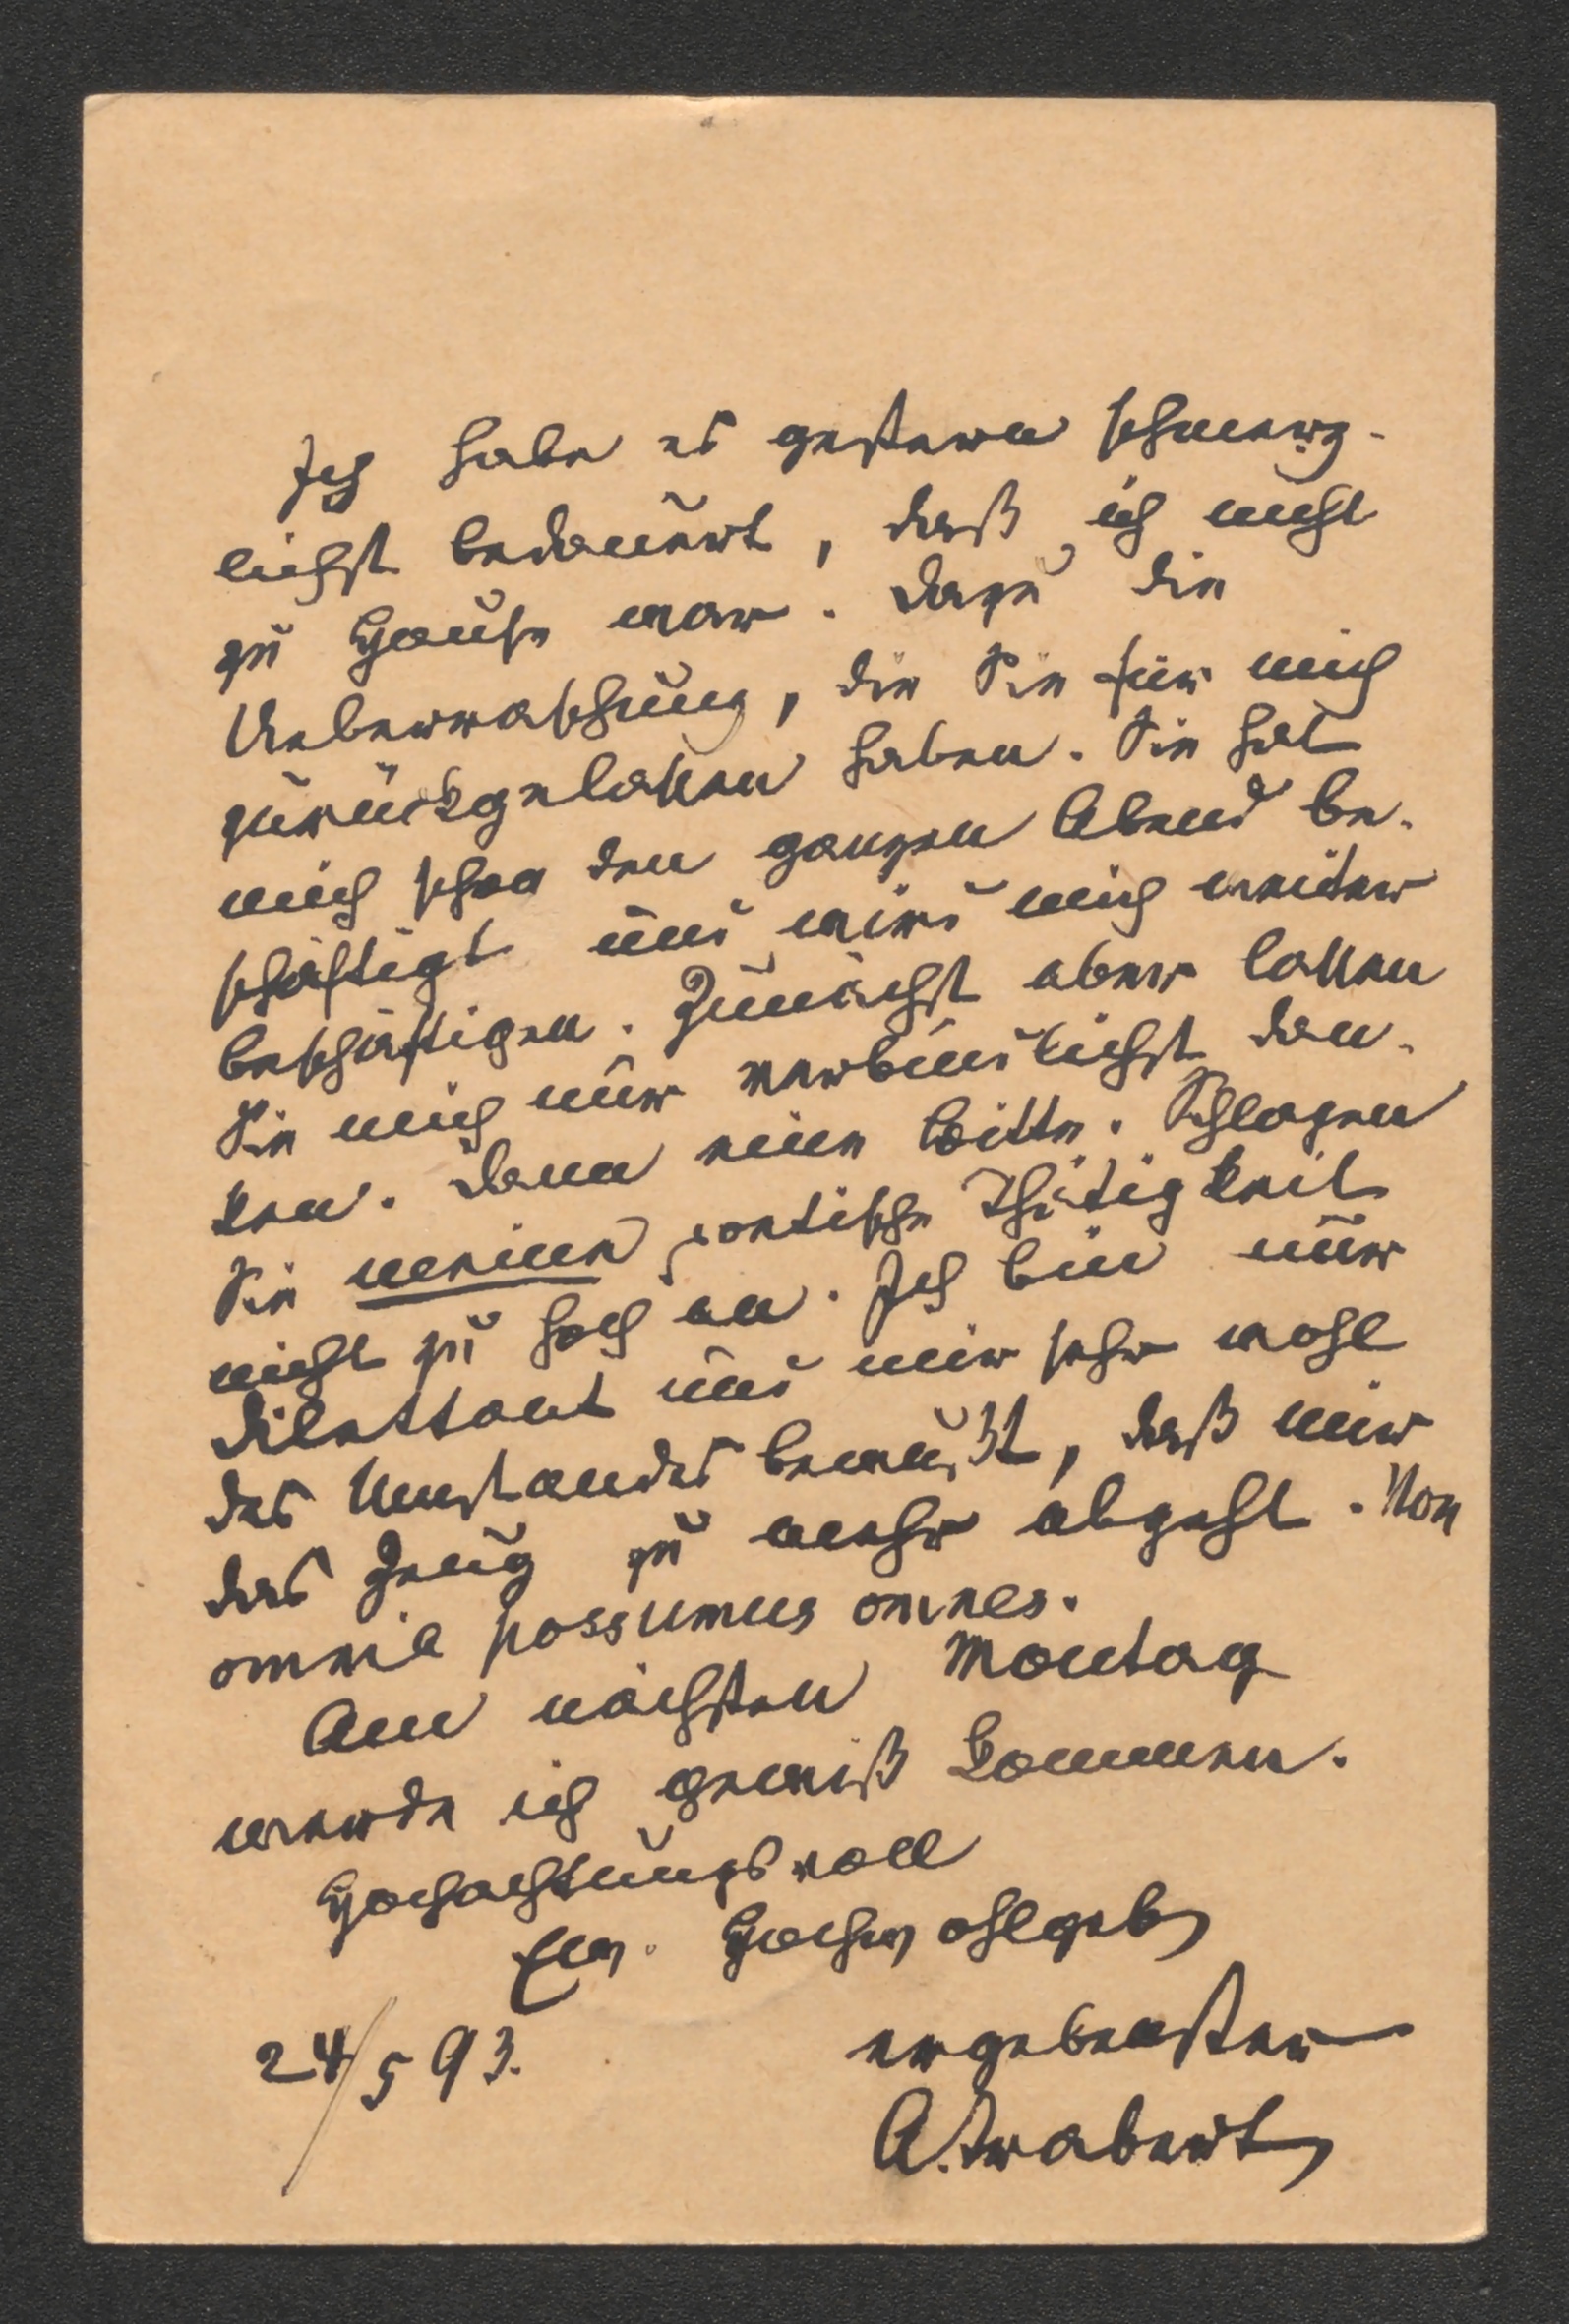 Ich habe es gestern schmerz-
lichst bedauert, daß ich nicht
zu Hause war. Dazu die
Ueberraschung, die Sie für mich
zurückgelassen haben. Sie hat
mich schon den ganzen Abend be-
schäftigt und wird mich weiter
beschäftigen. Zunächst aber lassen
Sie mich nur verbindlichst dan-
ken. Dann eine Bitte. Schlagen
Sie meine poetische Thätigkeit
nicht zu hoch an. Ich bin nur
Dilettant und mir sehr wohl
des Umstandes bewußt, daß mir
das Zeug zu mehr abgeht. Non
omnia possumus omnes.
Am nächsten Montag
werde ich gewiß kommen.
Hochachtungsvoll
Ew. Hochwohlgeb
ergebenster
24/5 93.
A. Trabert